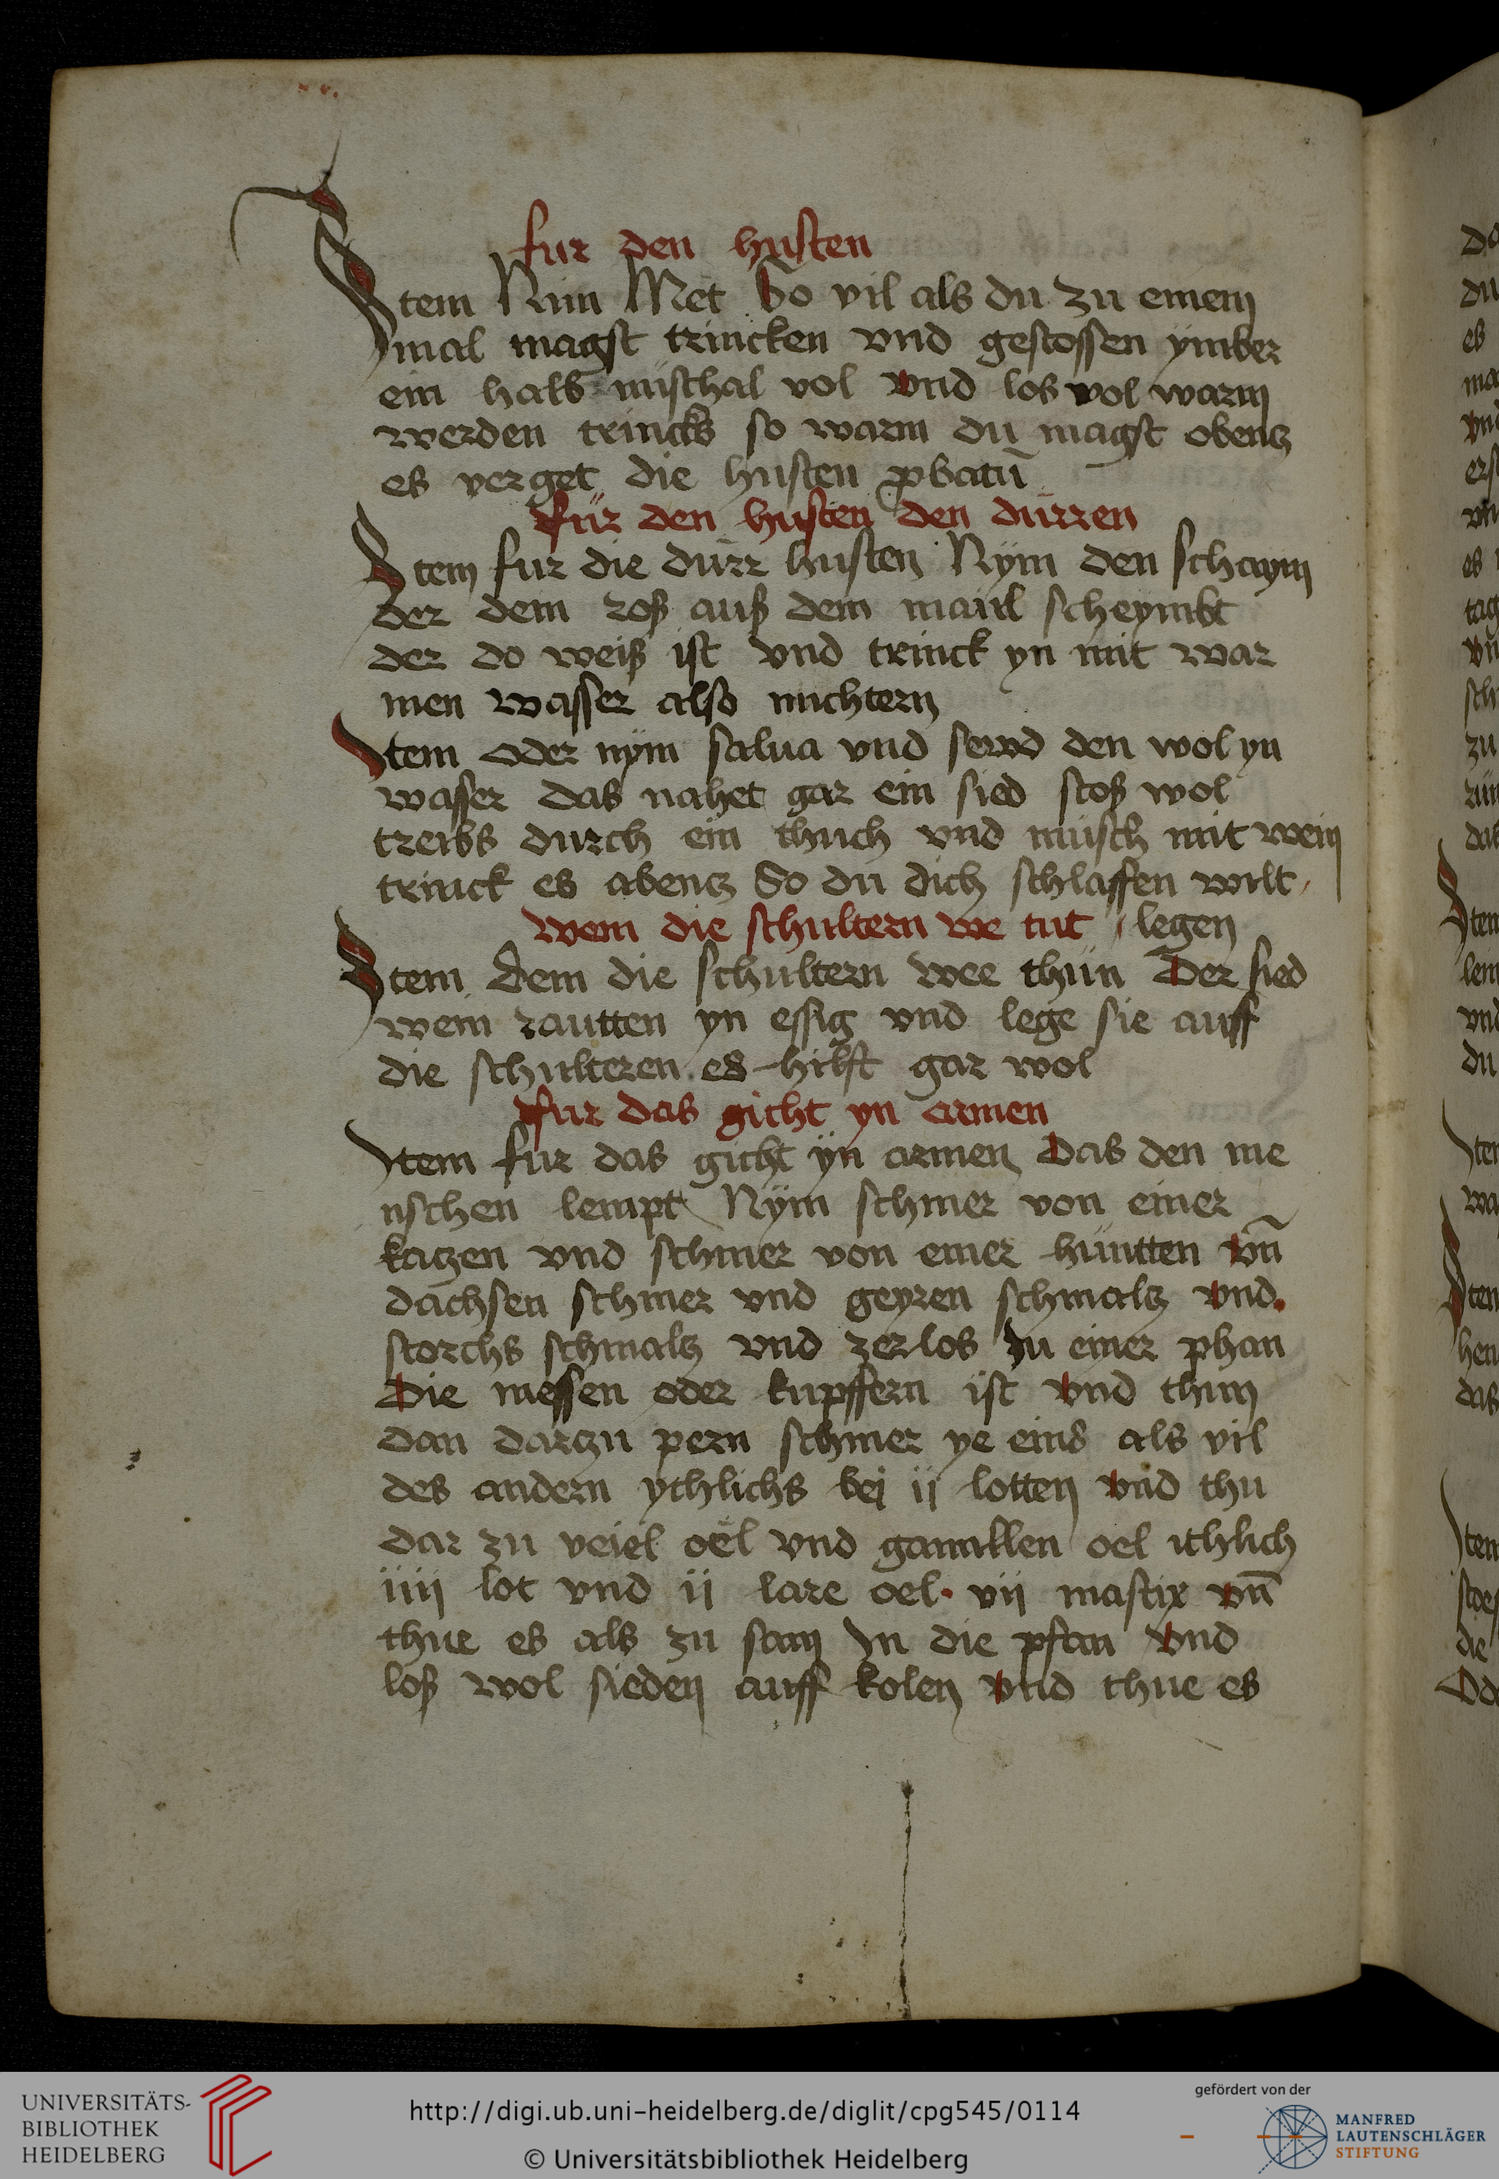 fur den husten
Item Nim Met So vil als du zu einem
mal magst trincken vnd gestossen ymber
ein halb nuschal vol vnd los wol warm
werden trincks so warm du magst obentz
es verget die husten pbatū
fur den husten den durren
Item fur die durr husten Nym den schaym
der dem roß auß dem maul scheymbt
der do weiß ist vnd trinck yn mit war
men wasser also nuchtern
Item oder nym salua vnd sewd den wol yn
wasser das nahet gar ein sied stoß wol
treibs durch ein thuch vnd musch mit wein
trinck es abentz So du dich schlaffen wilt
wem die schultern we tut legen
Item dem die schultern wee thun Der sied
wein rautten yn essig vnd lege sie auff
die schulteren es hilft gar wol
fur das gicht yn armen
Item fur das gicht yn armen Das den me
nschen lempt Nym schmer von einer
katzen vnd schmer von einer huntten vn̄
dachsen schmer vnd geyren schmaltz vnd
storchs schmaltz vnd zerlos In einer phan
Die messen oder kupffern ist vnd thun
dan darczu pern schmer ye eins als vil
des andern ythlichs bej ij lotten vnd thu
dar zu veiel oel vnd gamillen oel ithlich
iiij lot vnd ij lare oel vij mastix vn̄
thue es als zu sam In die pfan vnd
loß wol sieden auff kolen vnd thue es
UNIVERSITÄTS-
BIBLIOTHEK
HEIDELBERG
http://digi.ub.uni-heidelberg.de/diglit/cpg545/0114
© Universitätsbibliothek Heidelberg
gefördert von der
MANFRED
LAUTENSCHLÄGER
STIFTUNG